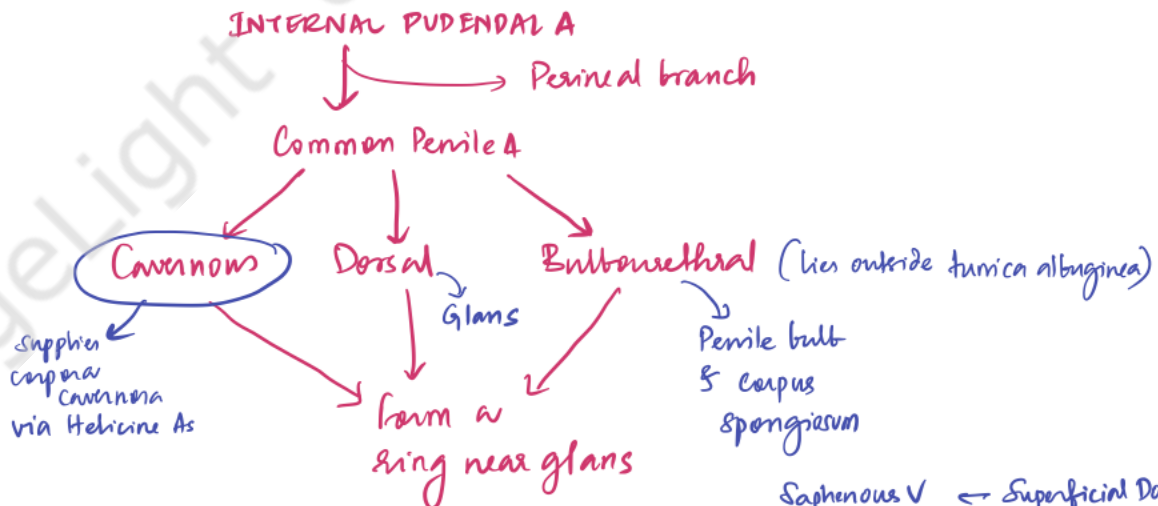 INTERNAL PUDENDAL A
Perineal branch
Common Penile A
Cavernous
Dorsal
Bulbourethral (lies outside tunica albuginea)
Glans
Supplies
corpora
cavernora
via Helicine As
Penile bulb
& corpus
spongiosum
Form a
ring near glans
Saphenous V ← Superficial Do
geLight